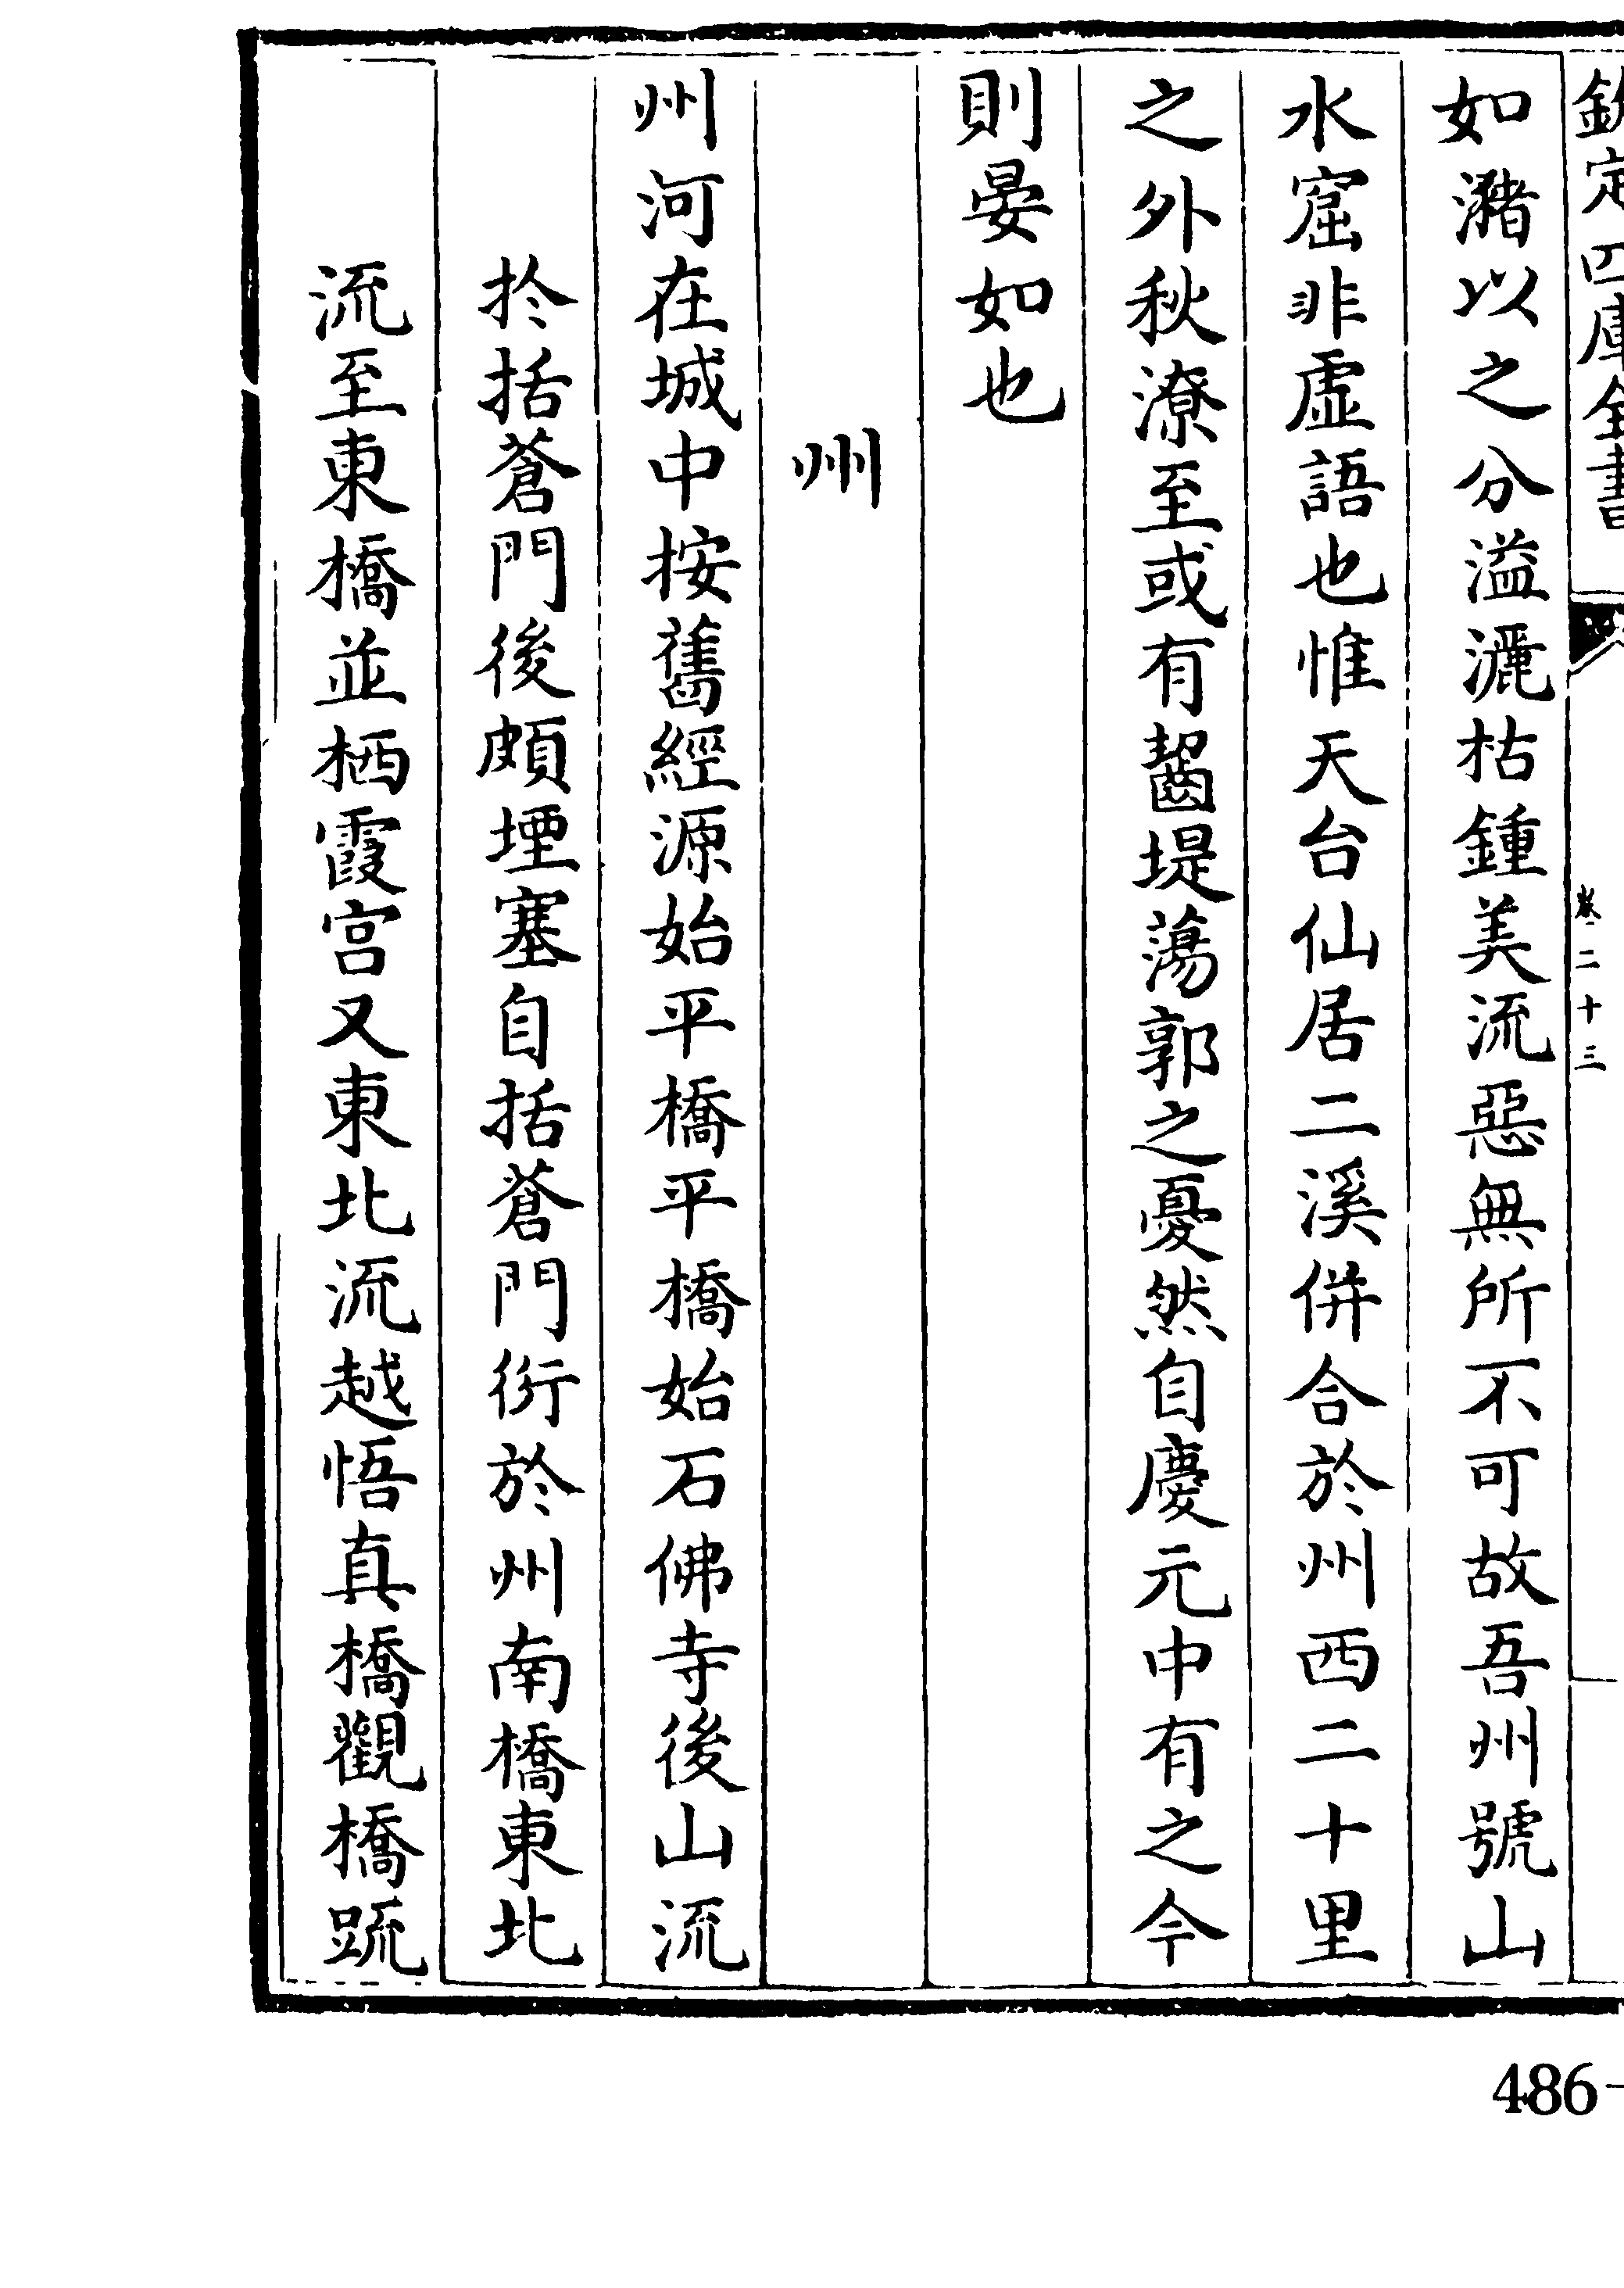 欽定四庫全書
卷二十三
如瀦以之分溢灑枯鍾美流惡無所不可故吾州號山
水窟非虛語也惟天台仙居二溪併合於州西二十里
之外秋潦至或有齧堤蕩郭之憂然自慶元中有之今
則晏如也
州
州河在城中按舊經源始平橋平橋始石佛寺後山流
扵括蒼門後頗堙塞自括蒼門衍於州南橋東北
流至東橋並栖霞宮又東北流越悟真橋觀橋䟽
486-